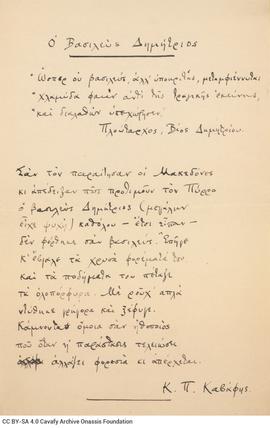 Ο Βασιλεύς Δημήτριος
"Ὥσπερ οὐ βασιλεύς, ἀλλ' ὑποκριτής, μεταμφιέννυται
"χλαμύδα φαιὰν ἀντὶ τῆς τραγικῆς ἐκείνης,
"καὶ διαλαθὼν ὑπεχώρησεν."
Πλούταρχος, Βίος Δημητρίου.
Σὰν τὸν παραίτησαν οἱ Μακεδόνες
κι ἀπέδειξαν πῶς προτιμοῦν τὸν Πύρρο
ὁ βασιλεὺς Δημήτριος (μεγάλην
εἶχε ψυχὴ) καθόλου — ἔτσι εἶπαν —
δὲν φέρθηκε σὰν βασιλεύς. Ἐπῆγε
κ' ἔβγαλε τὰ χρυσὰ φορέματά του
καὶ τὰ ποδήματά του πέταξε
τὰ ὁλοπόρφυρα. Μὲ ροῦχ' ἁπλὰ
ντύθηκε γρήγορα καὶ ξέφυγε.
Κάμνοντας ὅμοια σὰν ἠθοποιὸς
ποὺ ὅταν ἡ παράστασις τελειώσει
ἀλλάζει φορεσιὰ κι ἀπέρχεται.
Κ. Π. Καβάφης.
CC BY-SA 4.0 Cavafy Archive Onassis Foundation